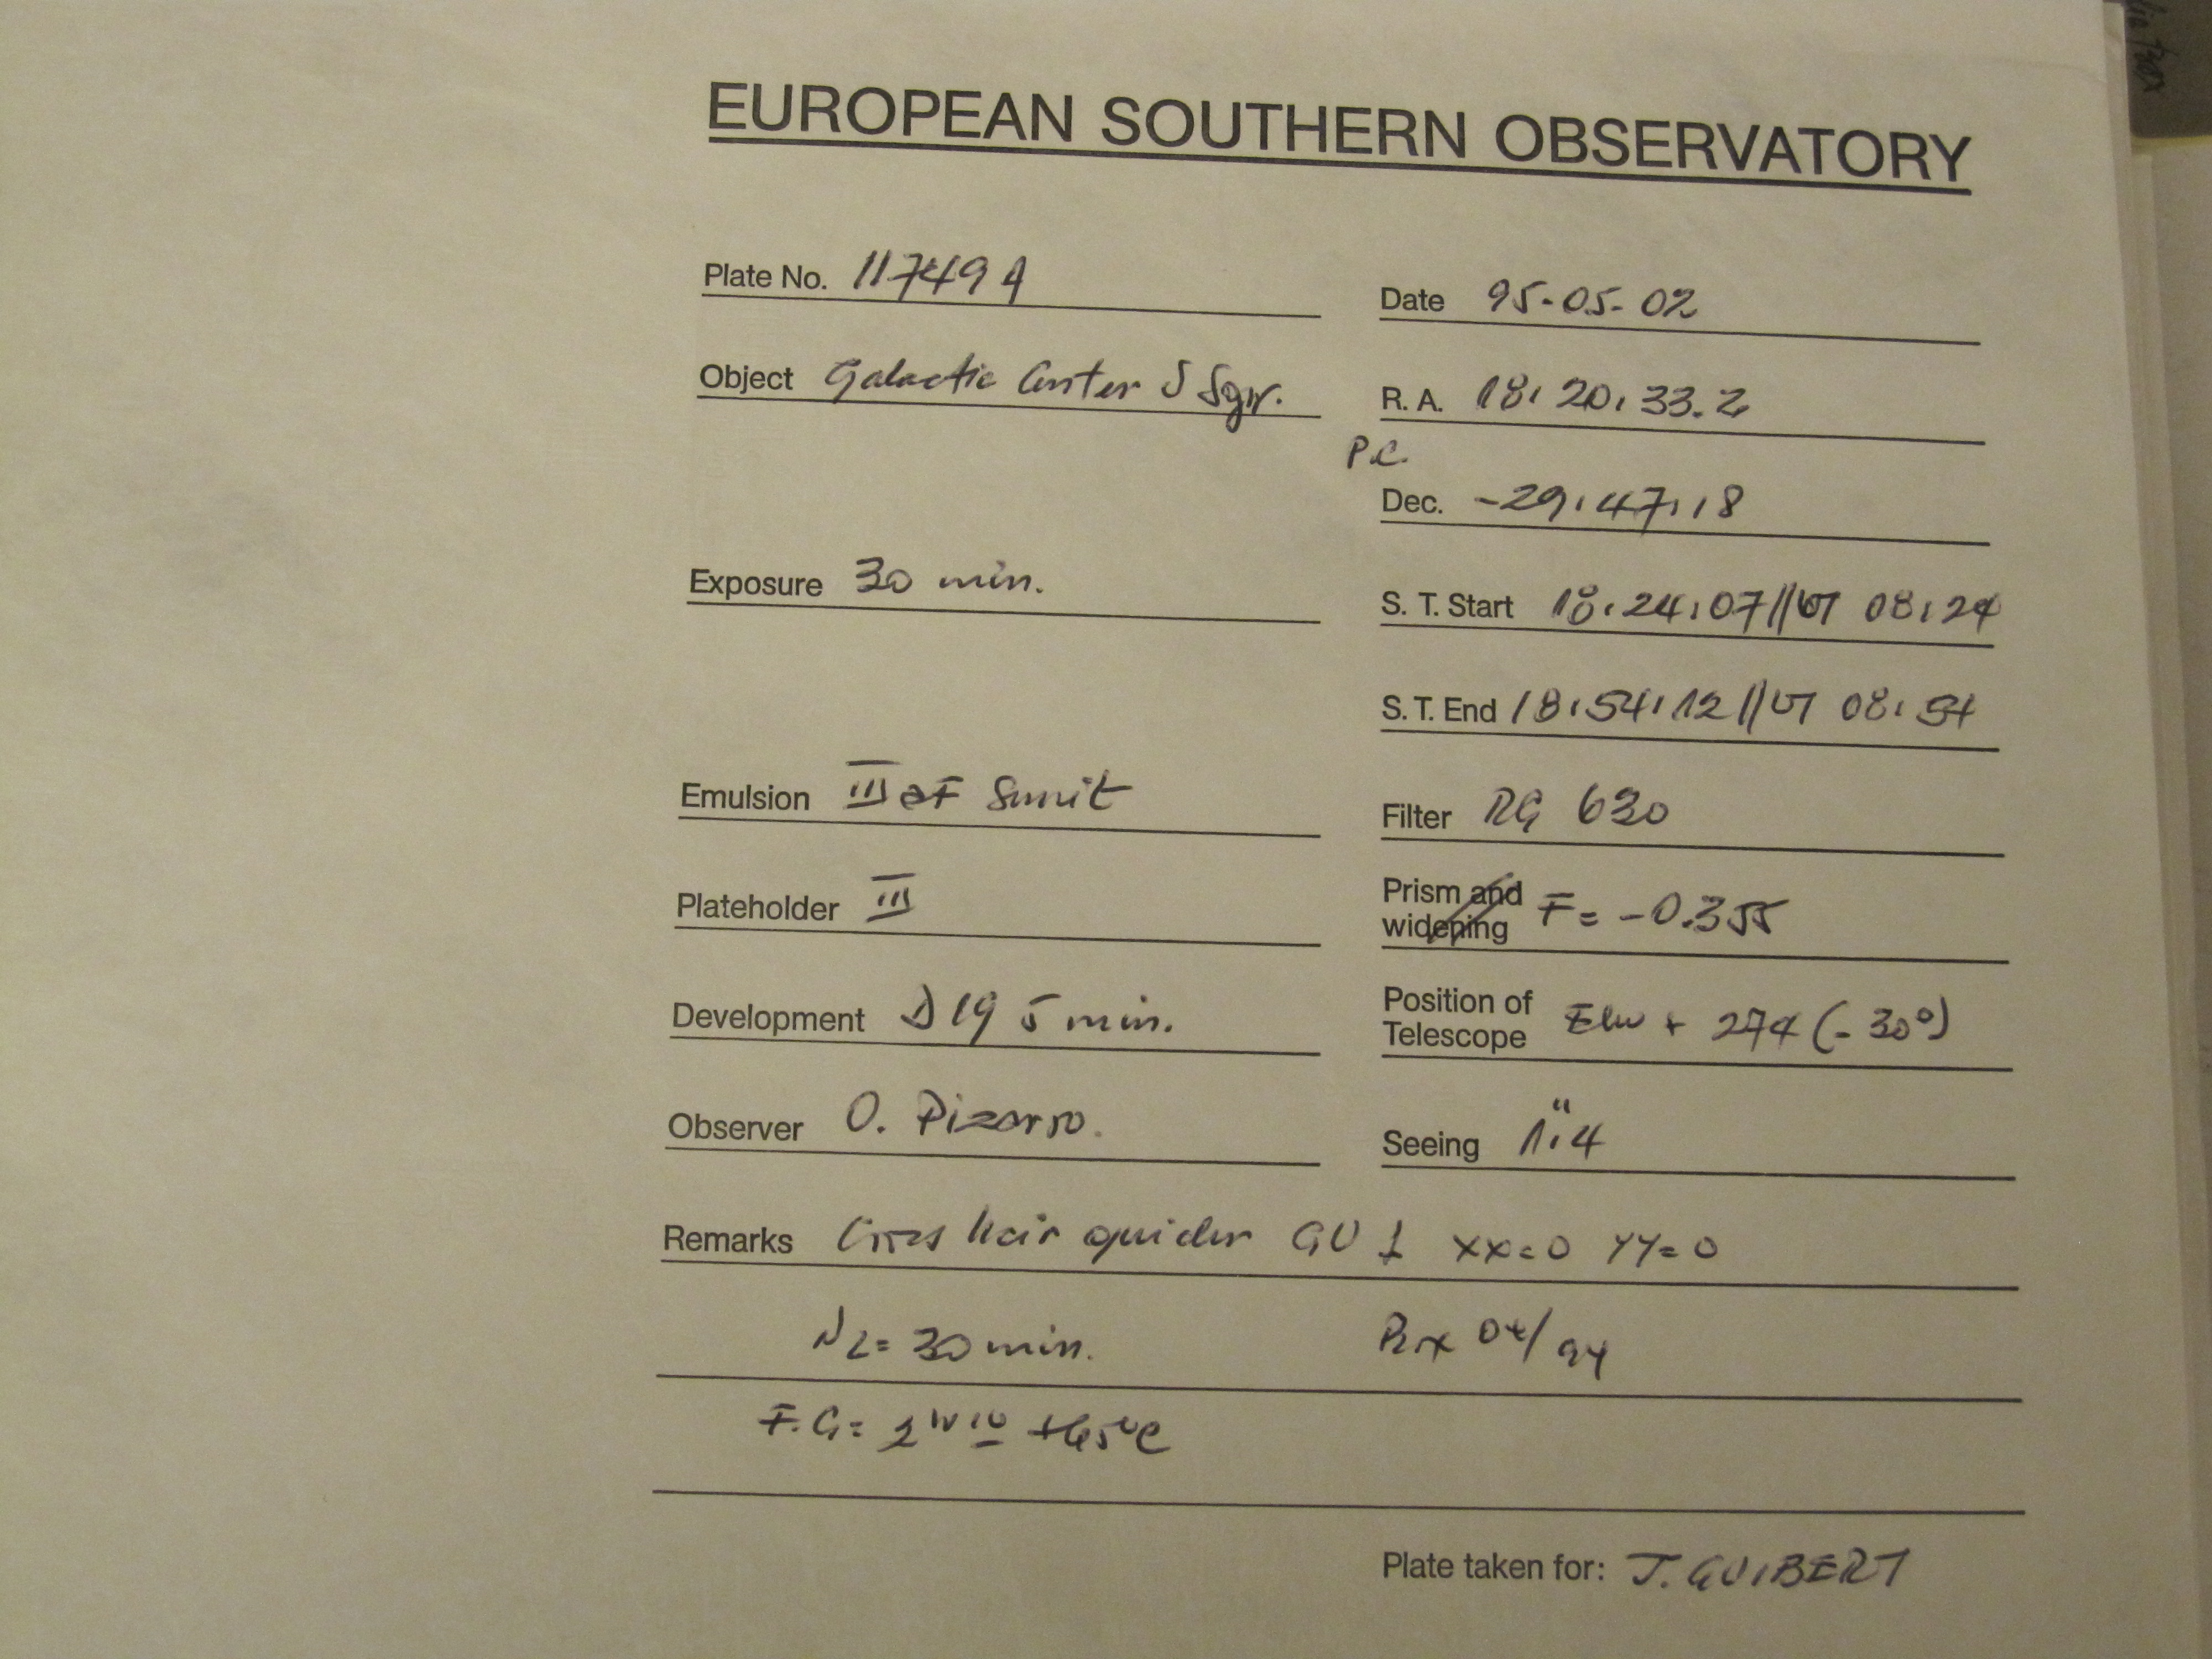 EUROPEAN SOUTHERN OBSERVATORY
Plate No. 11749A
Date 95-05-02
Object Galactic Center δ Sgr.
R. A. 18:20:33.2
P.C.
Dec. -29:47:18
Exposure 30 min.
S. T. Start 18:24:07//UT 08:24
S. T. End 18:54:12//UT 08:54
Emulsion III aF
Filter RG 630
Plateholder III
Prism and widening F= -0.355
Development D19 5 min.
Position of Telescope + 274 (-30°)
Observer O. Pizarro.
Seeing 1".4
Remarks Cross hair guider GU 1 XX=0 YY=0
N2= 30 min.
04/94
F.G= +65°C
Plate taken for: J. GUIBERT